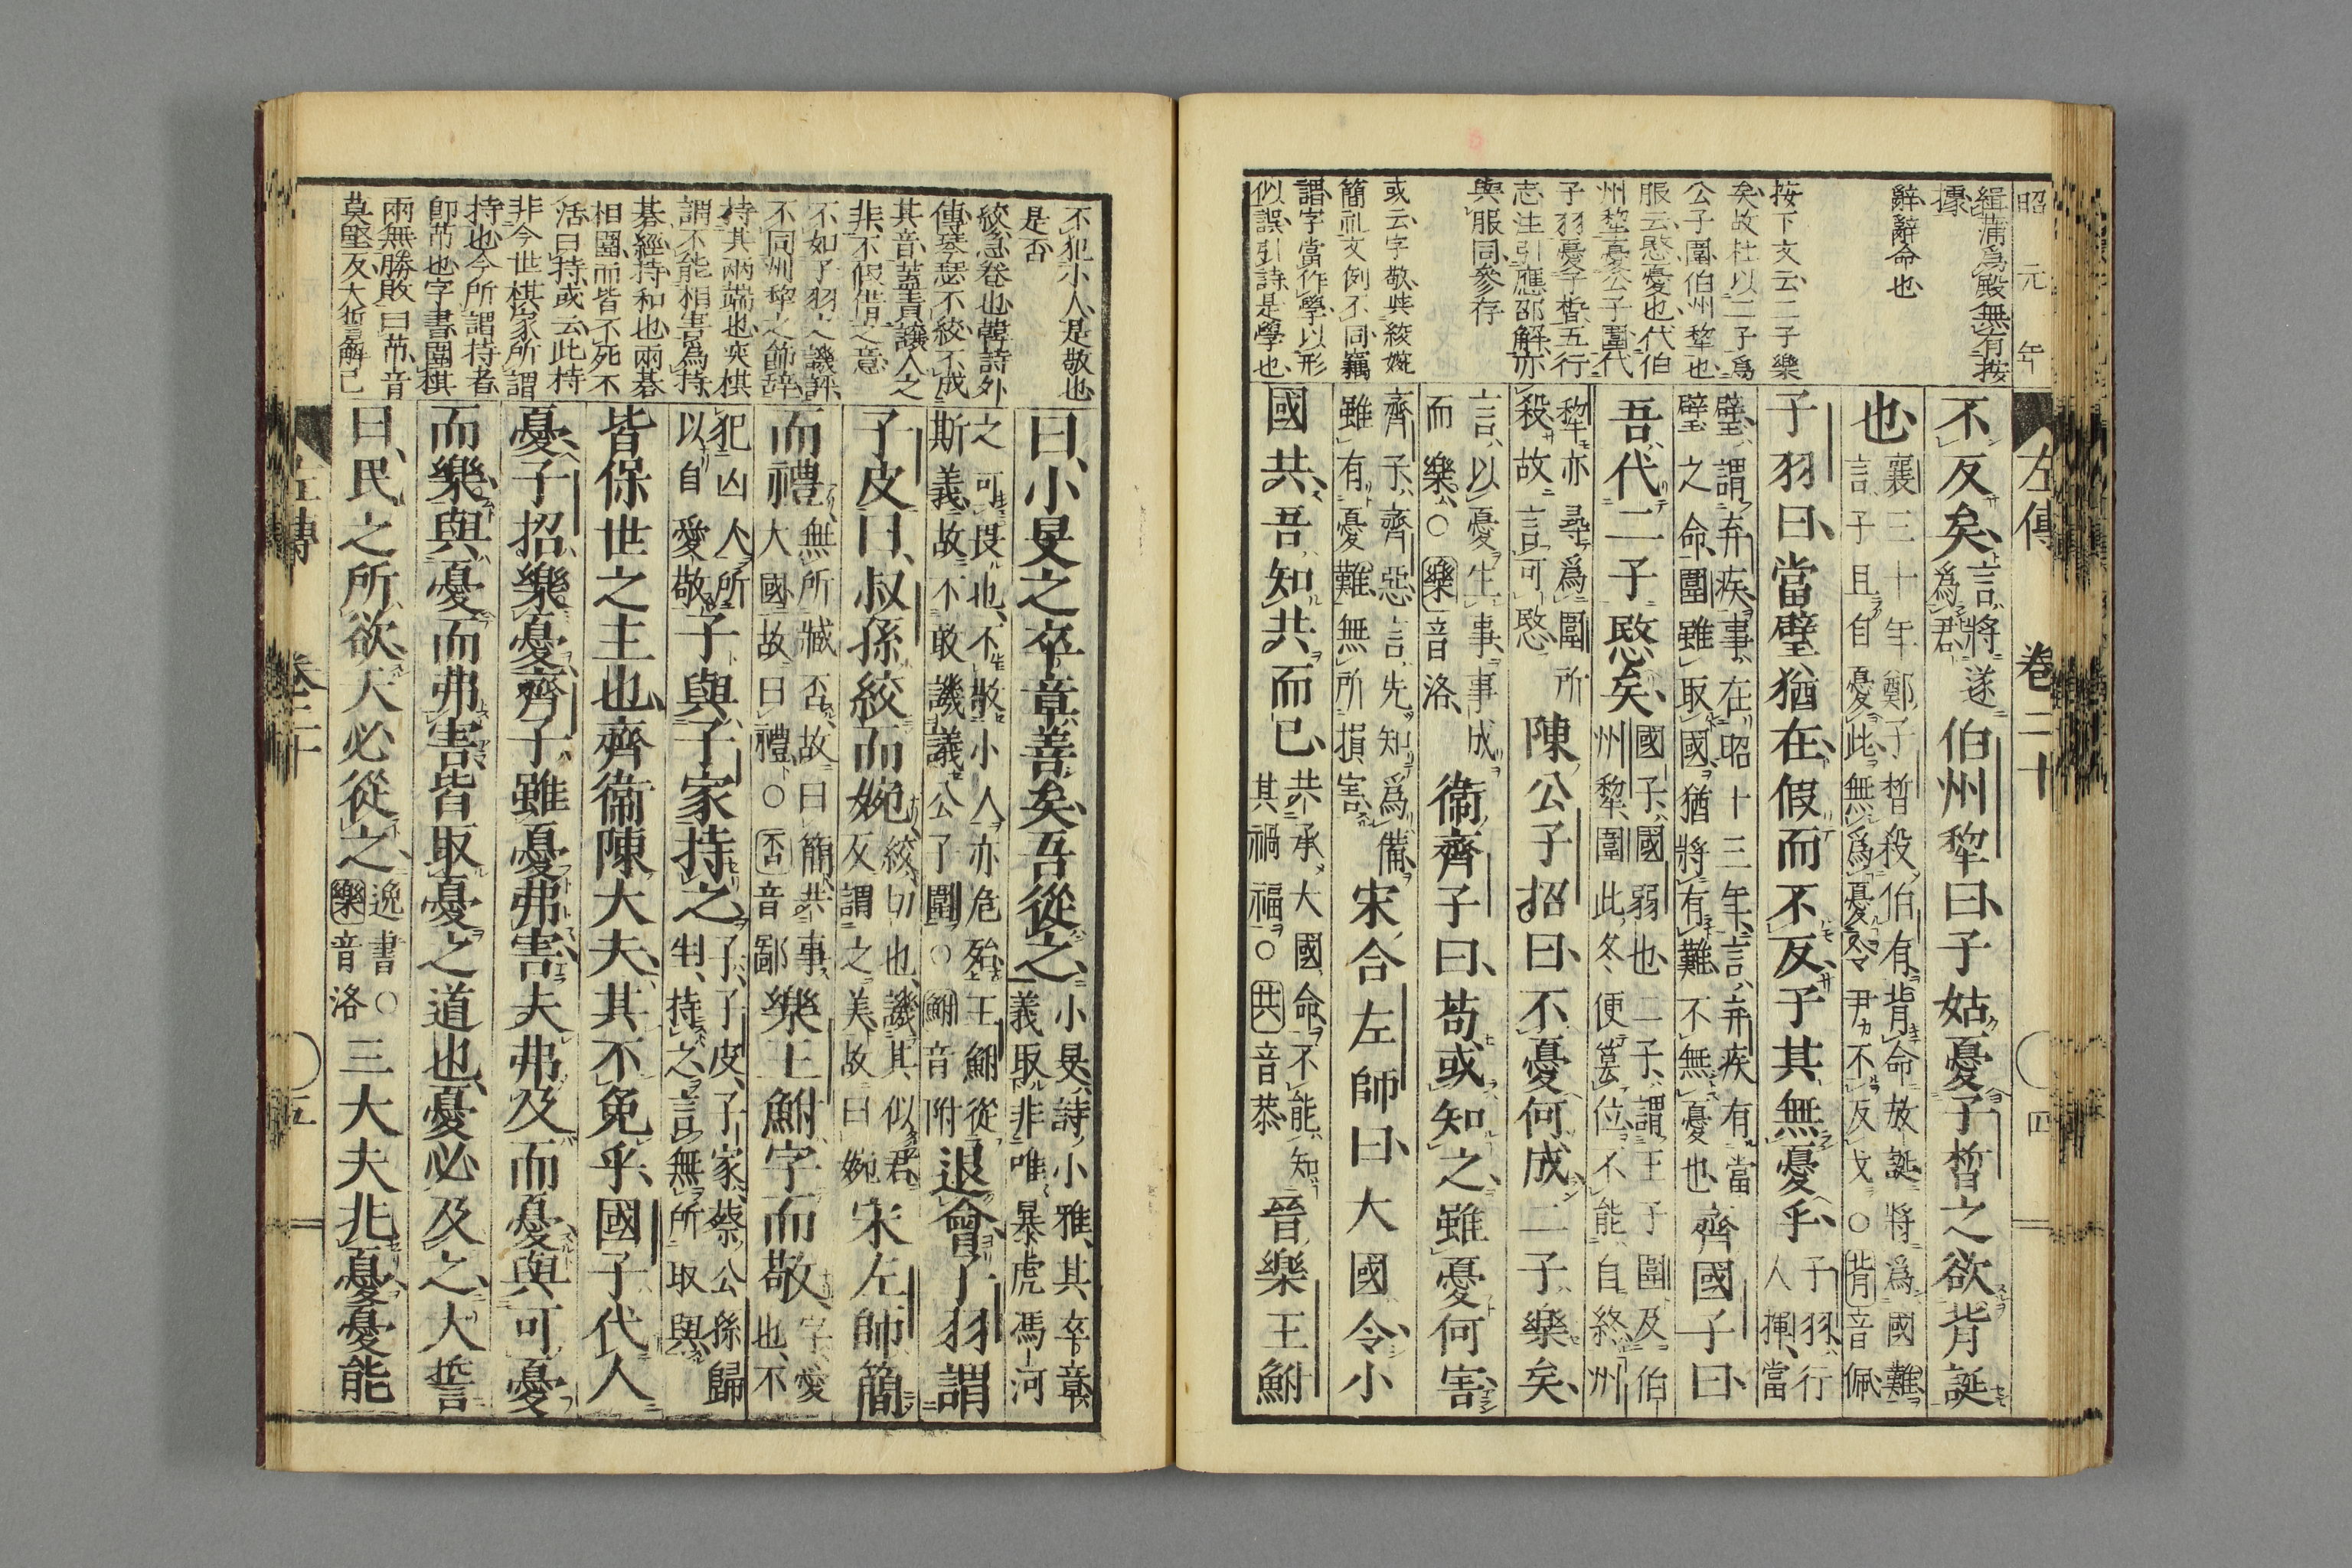 昭元年
緝蒲爲殿無有按
據
辭辭命也
按下文云二子樂
矣故杜以二子爲
公子圍伯州犂也
服云愍憂也代伯
州犂憂公子圍代
子羽憂子皙五行
志注引應邵解亦
與服同參存
或云字敬與絞婉
簡礼文例不同竊
謂字當作學以形
似誤引詩是學也
左傳 卷二十 四
不反矣言將遂爲君伯州犂曰子姑憂子皙之欲背誕
也襄三十年鄭子皙殺伯有背命放誕將爲國難言子且自憂此無爲憂令尹不反戈○背音佩
子羽曰當璧猶在假而不反子其無憂乎子羽行人揮當
璧謂弃疾事在昭十三年言弃疾有當璧之命圍雖取國猶將有難不無憂也齊國子曰
吾代二子愍矣國子國弱也二子謂王子圍及伯州犂圍此冬便簒位不能自終州
犂亦尋爲圍所殺故言可愍陳公子招曰不憂何成二子樂矣
言以憂生事事成而樂○樂音洛衞齊子曰苟或知之雖憂何害
齊子齊惡言先知爲備雖有憂難無所損害宋合左師曰大國令小
國共吾知共而已共承大國命不能知其禍福○共音恭晉樂王鮒
不犯小人是敬也
是否
絞急卷也韓詩外
傳琴瑟不絞不成
其音蓋責讓人之
非不假借之意
不如子羽之譏評
不同州犂之飾辞
持其兩端也奕棋
謂不能相害爲持
碁經持和也兩碁
相圍而皆不死不
活曰持或云此持
非今世棋家所謂
持也今所謂持者
卽芇也字書圍棋
兩無勝敗曰芇音
莫堅反大誓解已
曰小旻之卒章善矣吾從之小旻詩小雅其卒章義取非唯暴虎馮河
之可畏也不敬小人亦危殆王鮒從斯義故不敢譏議公子圍○鮒音附退會子羽謂
子皮曰叔孫絞而婉絞切也譏其似君反謂之美故曰婉宋左師簡
而禮無所臧否故曰簡共事大國故曰禮○否音鄙樂王鮒字而敬字愛也不
犯凶人所以自愛敬子與子家持之子子皮子家蔡公孫歸生持之言無所取與
皆保世之主也齊衞陳大夫其不免乎國子代人
憂子招樂憂齊子雖憂弗害夫弗及而憂與可憂
而樂與憂而弗害皆取憂之道也憂必及之大誓
曰民之所欲天必從之逸書○樂音洛三大夫兆憂憂能
左傳 卷二十 五